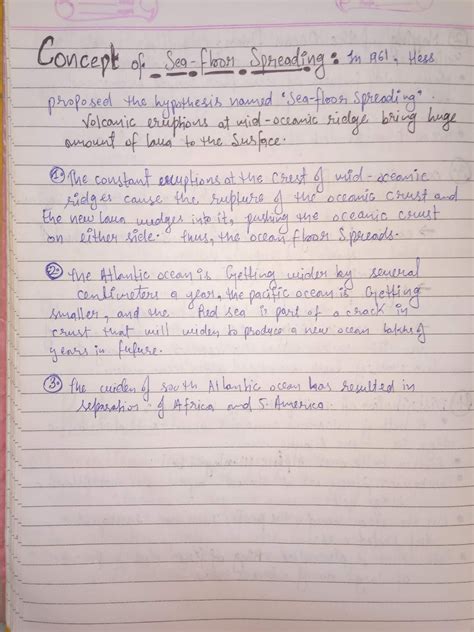 Concept of Sea-floor Spreading: In 961, Hess
proposed the hypothesis named "Sea-floor Spreading".
Volcanic eruptions at mid-oceanic ridge bring huge
amount of lava to the surface.
1. The constant eruptions at the crest of mid-oceanic
ridges cause the rupture of the oceanic crust and
the new lava wedges into it, pushing the oceanic crust
on either side. Thus, the ocean floor Spreads.
2. The Atlantic ocean is Getting wider by several
centimeters a year, the pacific ocean is Getting
smaller, and the Red sea is part of a crack in
crust that will widen to produce a new ocean of
years in future.
3. The widen of south Atlantic ocean has resulted in
separation of Africa and S. America.